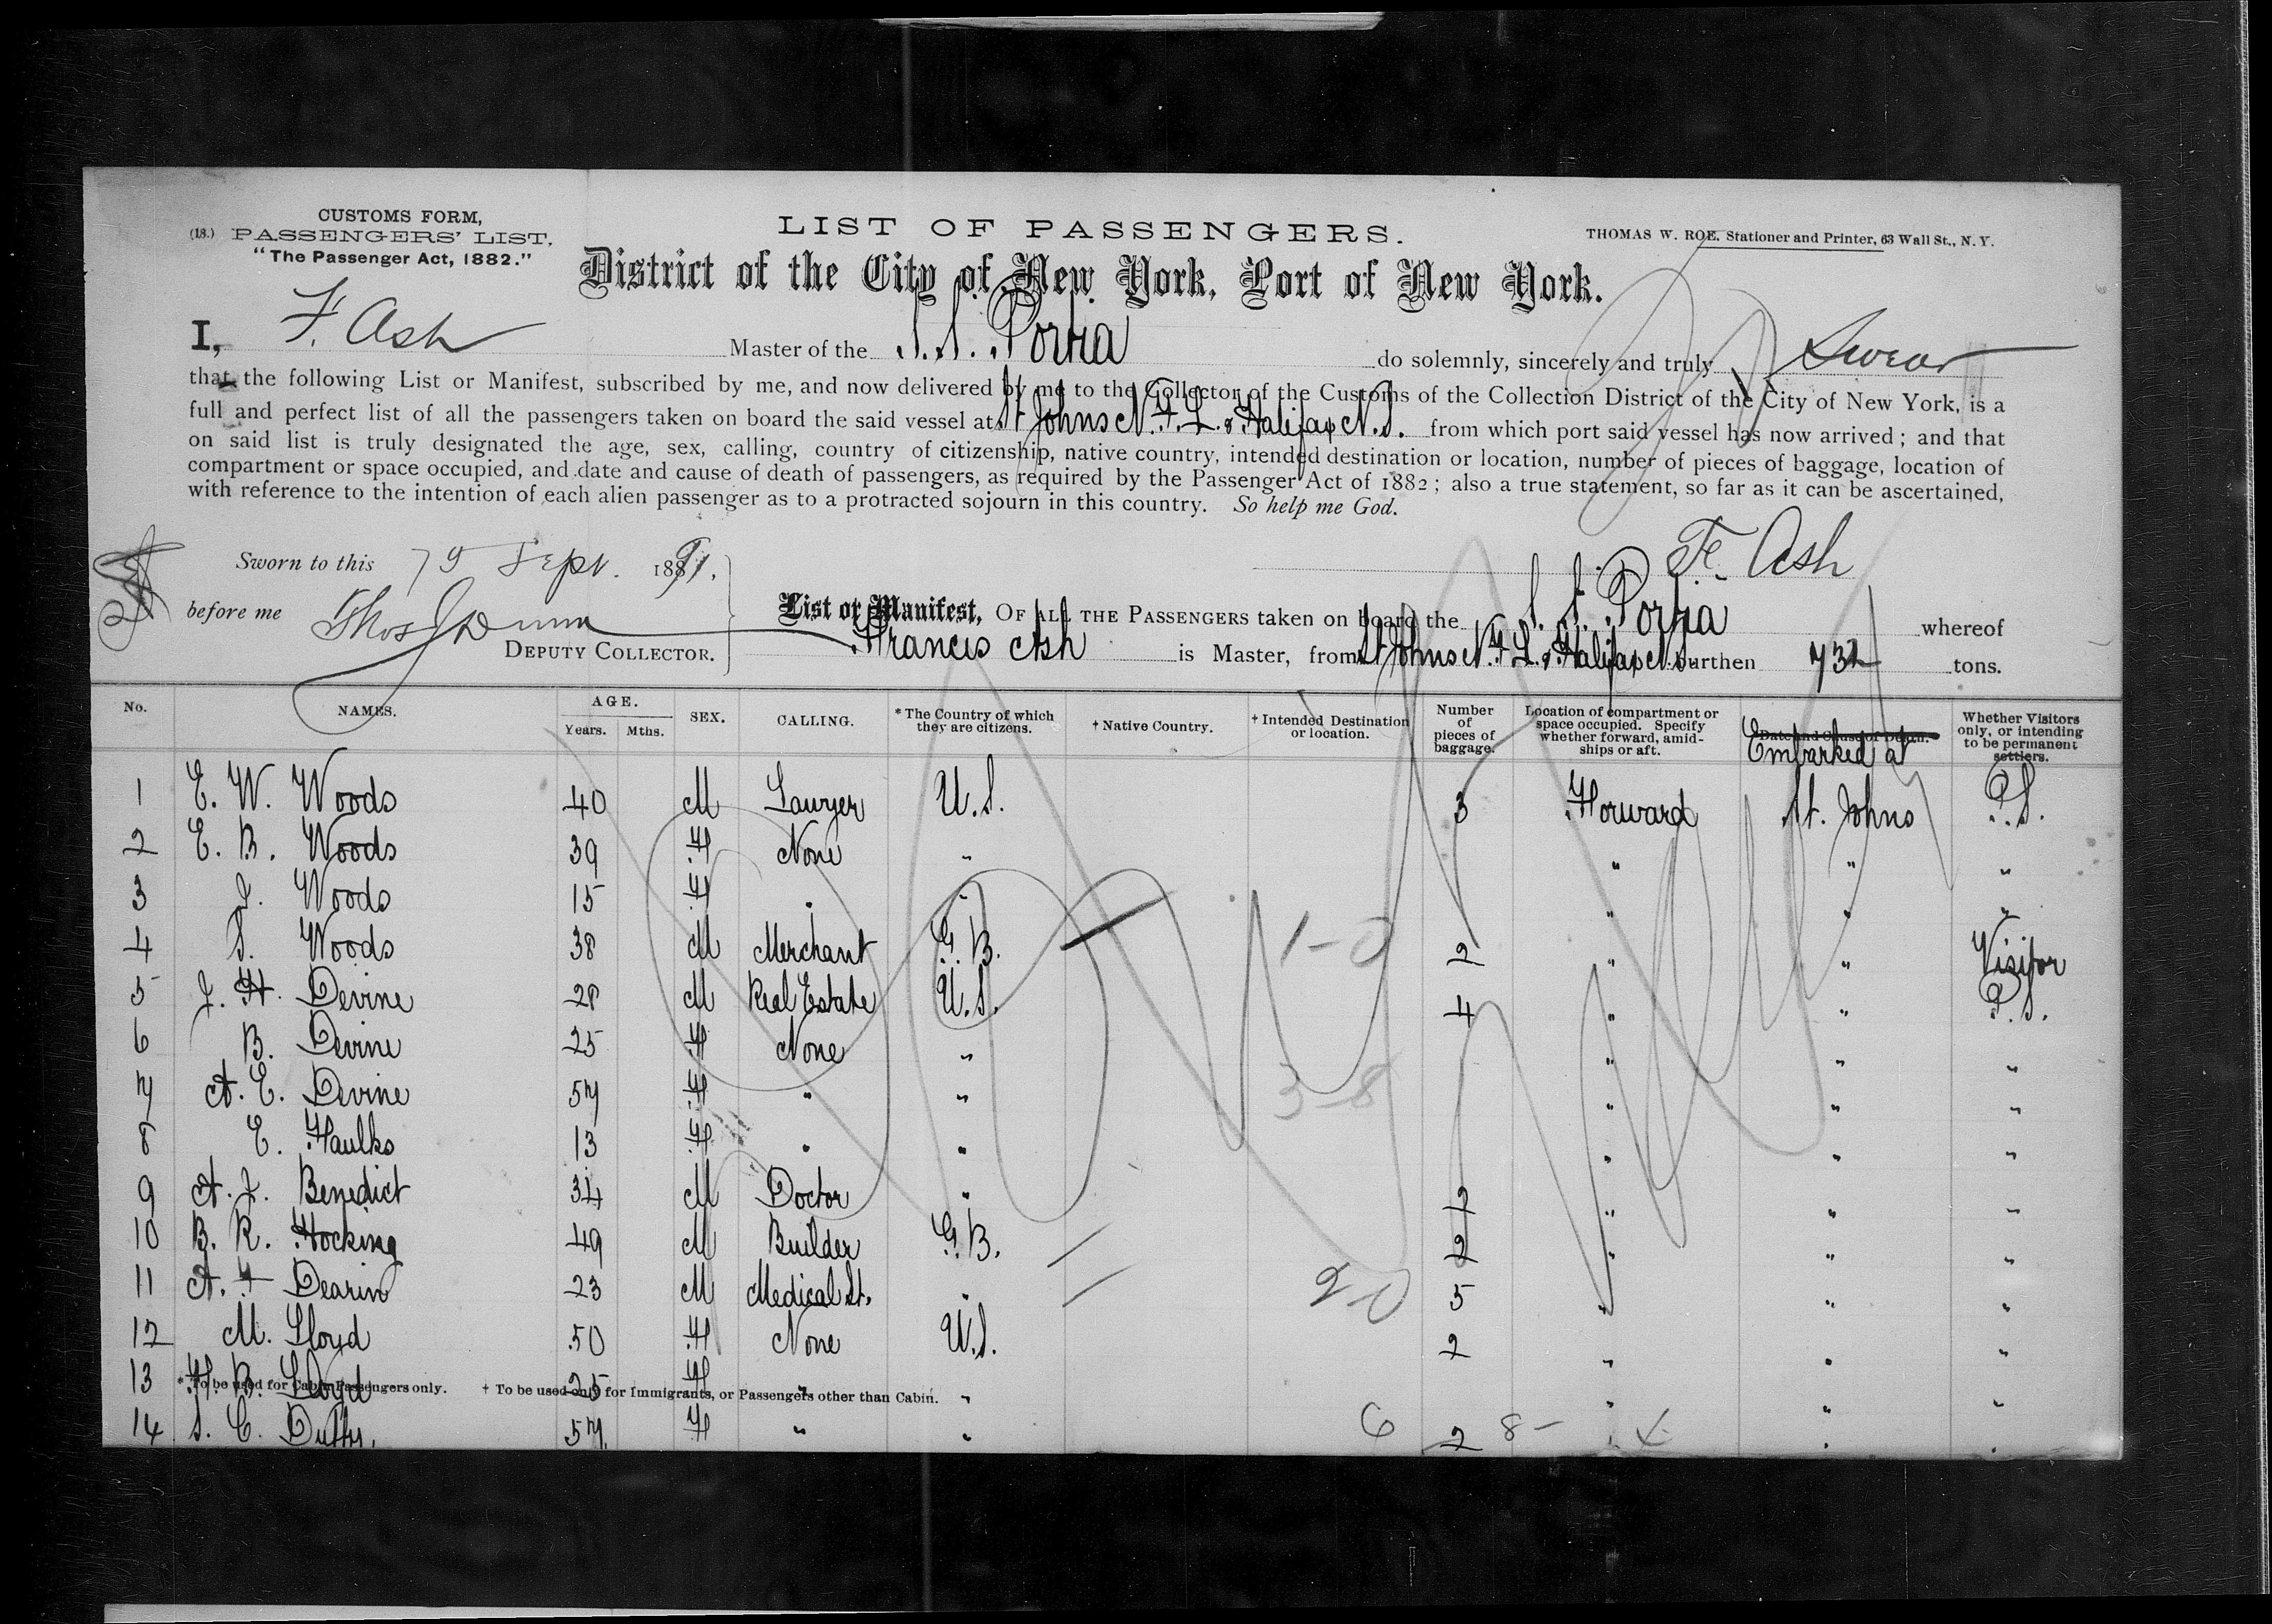 CUSTOMS FORM,
(18.) PASSENGERS' LIST.
"The Passenger Act, 1882."
LIST OF PASSENGERS.
THOMAS W. ROE, Stationer and Printer, 63 Wall St., N. Y.
District of the City of New York, Port of New York.
I, F. Ash Master of the S.S. Portia do solemnly, sincerely and truly Swear
that the following List or Manifest, subscribed by me, and now delivered by me to the Collector of the Customs of the Collection District of the City of New York, is a
full and perfect list of all the passengers taken on board the said vessel at St Johns N.F.L. & Halifax N.S. from which port said vessel has now arrived; and that
on said list is truly designated the age, sex, calling, country of citizenship, native country, intended destination or location, number of pieces of baggage, location of
compartment or space occupied, and date and cause of death of passengers, as required by the Passenger Act of 1882; also a true statement, so far as it can be ascertained,
with reference to the intention of each alien passenger as to a protracted sojourn in this country. So help me God.
Sworn to this Sept. 1891. F. Ash
before me Thos J Dunn List or Manifest, OF ALL THE PASSENGERS taken on board the S.S. Portia whereof
DEPUTY COLLECTOR. Francis Ash is Master, from St Johns N.F.L. & Halifax N.S. burthen 732 tons.
No. NAMES. AGE. Years. Mths. SEX. CALLING. * The Country of which they are citizens. † Native Country. † Intended Destination or location. Number of pieces of baggage. Location of compartment or space occupied. Specify whether forward, amidships or aft. Date and Cause of Death. Embarked at Whether Visitors only, or intending to be permanent settlers.
1 E. W. Woods 40 M Lawyer U.S. 3 Forward St. Johns P.S.
2 E. B. Woods 39 F None " " " "
3 J. Woods 15 F " " " " "
4 S. Woods 38 M Merchant G.B. 1-0 2 " " Visitor
5 J. H. Devine 28 M Real Estate U.S. 4 " " P.S.
6 B. Devine 25 F None " " " "
7 A. E. Devine 57 F " " 3-8 " " "
8 E. Faulks 13 F " " " " "
9 A. J. Benedict 34 M Doctor " 2 " " "
10 B. R. Hocking 49 M Builder G.B. 2 " " "
11 A. F Dearin 23 M Medical St. " 2-0 5 " " "
12 M. Lloyd 50 F None U.S. 2 " " "
13 F. B. Lloyd 25 F " " " " "
* To be used for Cabin Passengers only. † To be used only for Immigrants, or Passengers other than Cabin.
14 S. C. 57 F " " 6 2 8- " " "